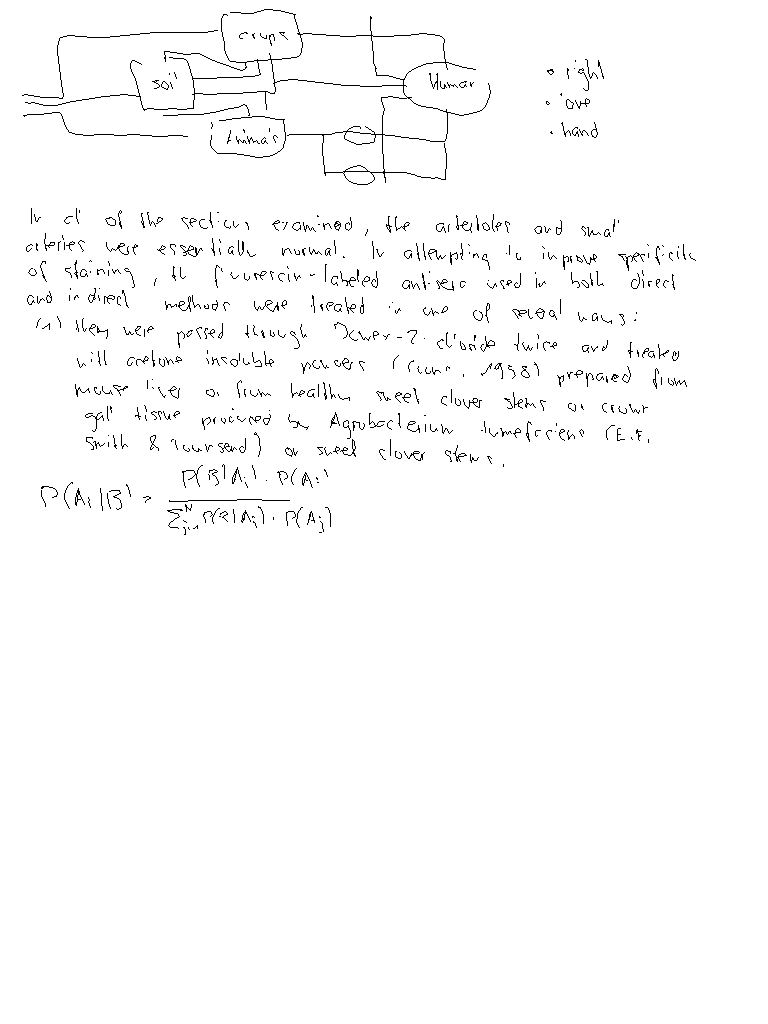 crops
soil
Human
Animals
• right
• love
• hand
In all of the sections examined, the arterioles and small
arteries were essentially normal. In attempting to improve specificity
of staining, the fluorescin-labeled antisera used in both direct
and indirect methods were treated in one of several ways:
(1) They were passed through Dowex-2 chloride twice and treated
with acetone insoluble powers (, 1958) prepared from
mouse liver or from healthy sweet clover stems or crown
gall tissue produced by Agrobacterium tumefaciens (E.F.
Smith & Townsend) or sweet clover stems.
P(A_i|B) = \frac{P(B|A_i) \cdot P(A_i)}{\sum_{j=1}^{N} P(B|A_j) \cdot P(A_j)}